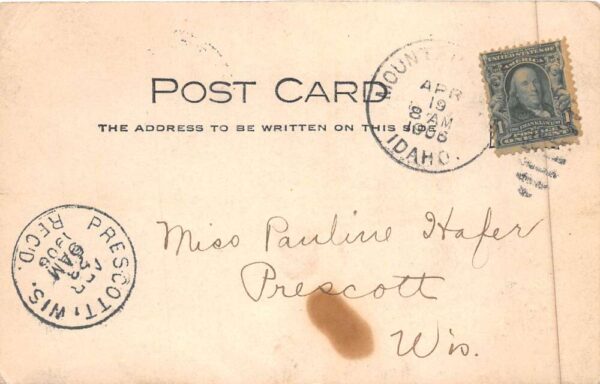 POST CARD
THE ADDRESS TO BE WRITTEN ON THIS SIDE
MOUNTAIN
APR
19
8 AM
1906
IDAHO.
UNITED STATES OF
AMERICA
1
POSTAGE
PRESCOTT, WIS.
APR
23
AM
1906
REC'D.
Miss Pauline Hafer
Prescott
Wis.